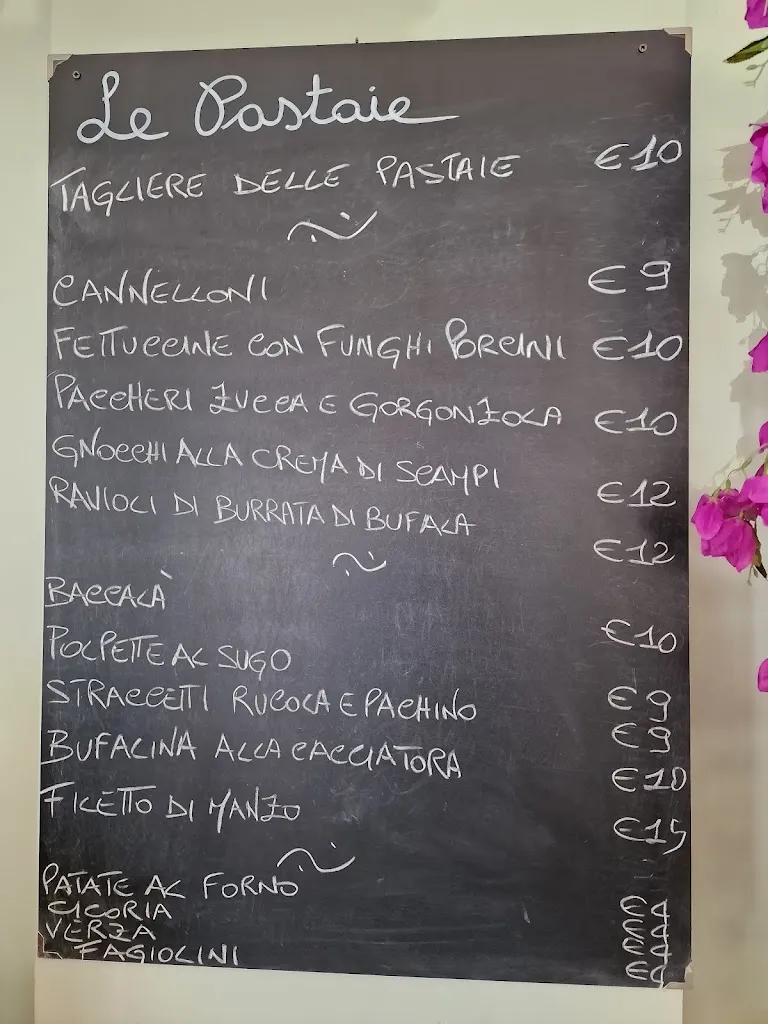 Le Pastaie
TAGLIERE DELLE PASTAIE €10
CANNELLONI €9
FETTUCCINE CON FUNGHI PORCINI €10
PACCHERI ZUCCA E GORGONZOLA €10
GNOCCHI ALLA CREMA DI SCAMPI €12
RAVIOLI DI BURRATA DI BUFALA €12
BACCALÀ €10
POLPETTE AL SUGO €9
STRACCETTI RUCOLA E PACHINO €9
BUFALINA ALLA CACCIATORA €10
FILETTO DI MANZO €15
PATATE AL FORNO €4
CICORIA €4
VERZA €4
FAGIOLINI €4